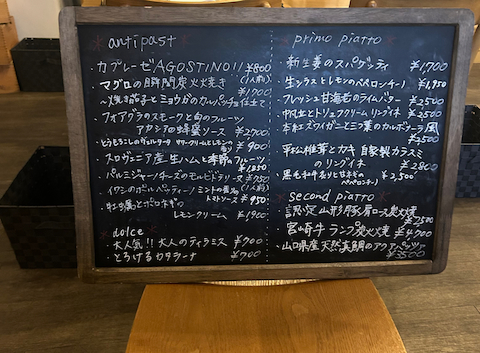 antipast
カプレーゼ AGOSTINO!! ¥800
(1人前)
マグロの瞬間炭火焼き ¥1700
焼き茄子とミョウガのカルパッチョ仕立て
フォアグラのスモークと旬のフルーツ
アカシアの蜂蜜ソース ¥2,900
とうもろこしの サワークリームとレモンの
¥900
スロヴェニア産生ハムと季節のフルーツ
¥1850
パルミジャーノチーズのモルビドラリーズ ¥950
(1人前)
イワシのポルペッティーノ ミントの香り
トマトソース ¥950
牡蠣とポロネギの
レモンクリーム ¥1,900
dolce
大人気!! 大人のティラミス ¥900
とろけるカタラーナ ¥700
primo piatto
新生姜のスパゲッティ ¥1,700
生シラスとレモンのペペロンチーノ ¥1,950
フレッシュ甘海老のライムバター ¥2500
帆立とトリュフクリーム リングイネ ¥2500
本紅ズワイガニと三つ葉のカルボナーラ風
¥2500
平松椎茸とカキ 自家製カラスミ
のリングイネ ¥2800
黒毛和牛炙りと甘ネギの
ペペロンチーノ ¥2,500
second piatto
認定山形豚肩ロース炭火焼
¥2500
宮崎牛ランプ炭火焼 ¥4,900
山口県産天然真鯛のアクアパッツァ
¥3500